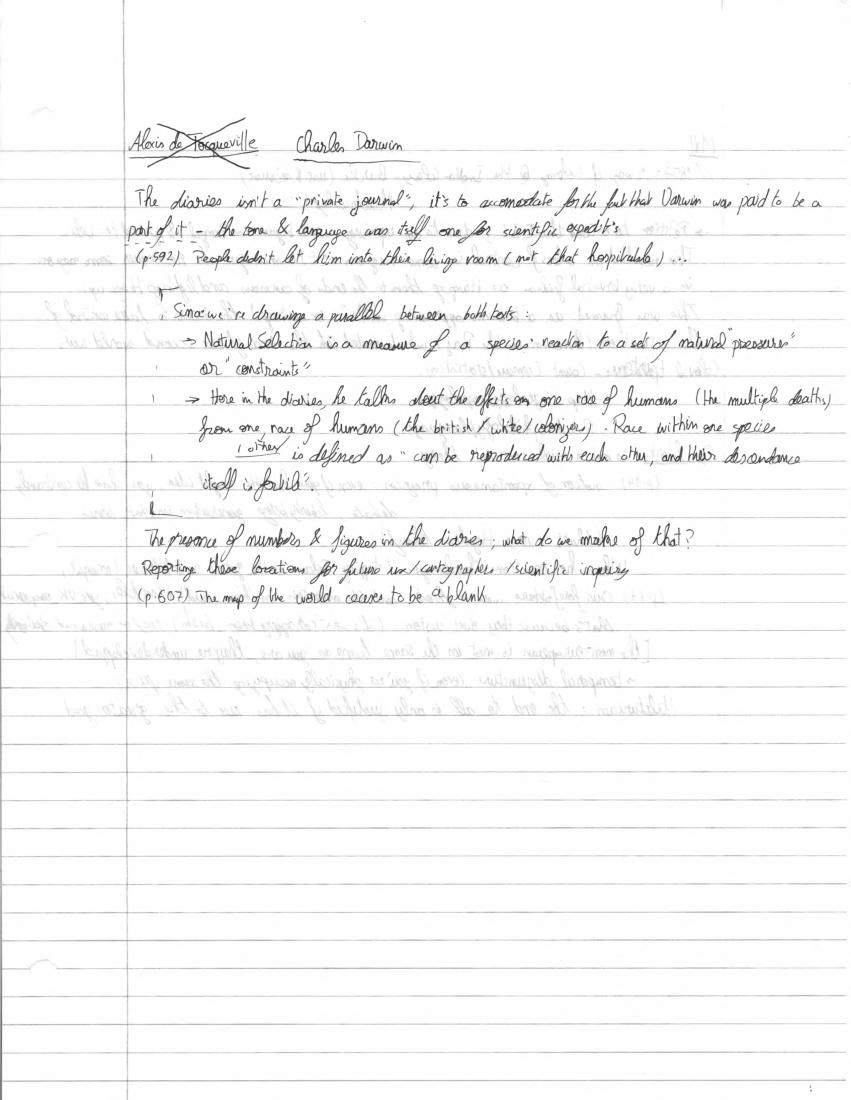 Alexis de Tocqueville Charles Darwin
The diaries isn't a "private journal", it's to accomodate for the fact that Darwin was paid to be a
part of it - the tone & language was itself one for scientific expedit's
(p.592) People didn't let him into their living room (not that hospitable) ...
Since we're drawing a parallel between both texts :
→ Natural Selection is a measure of a species' reaction to a set of natural "pressures"
or "constraints"
→ Here in the diaries, he talks about the effects on one race of humans (the multiple deaths)
from one race of humans (the british/white/colonizers). Race within one species
other
is defined as "can be reproduced with each other, and their descendance
itself is fertile".
The presence of numbers & figures in the diaries ; what do we make of that?
Reporting these locations for future use/cartographers/scientific inquiry
(p.607) The map of the world ceases to be a blank